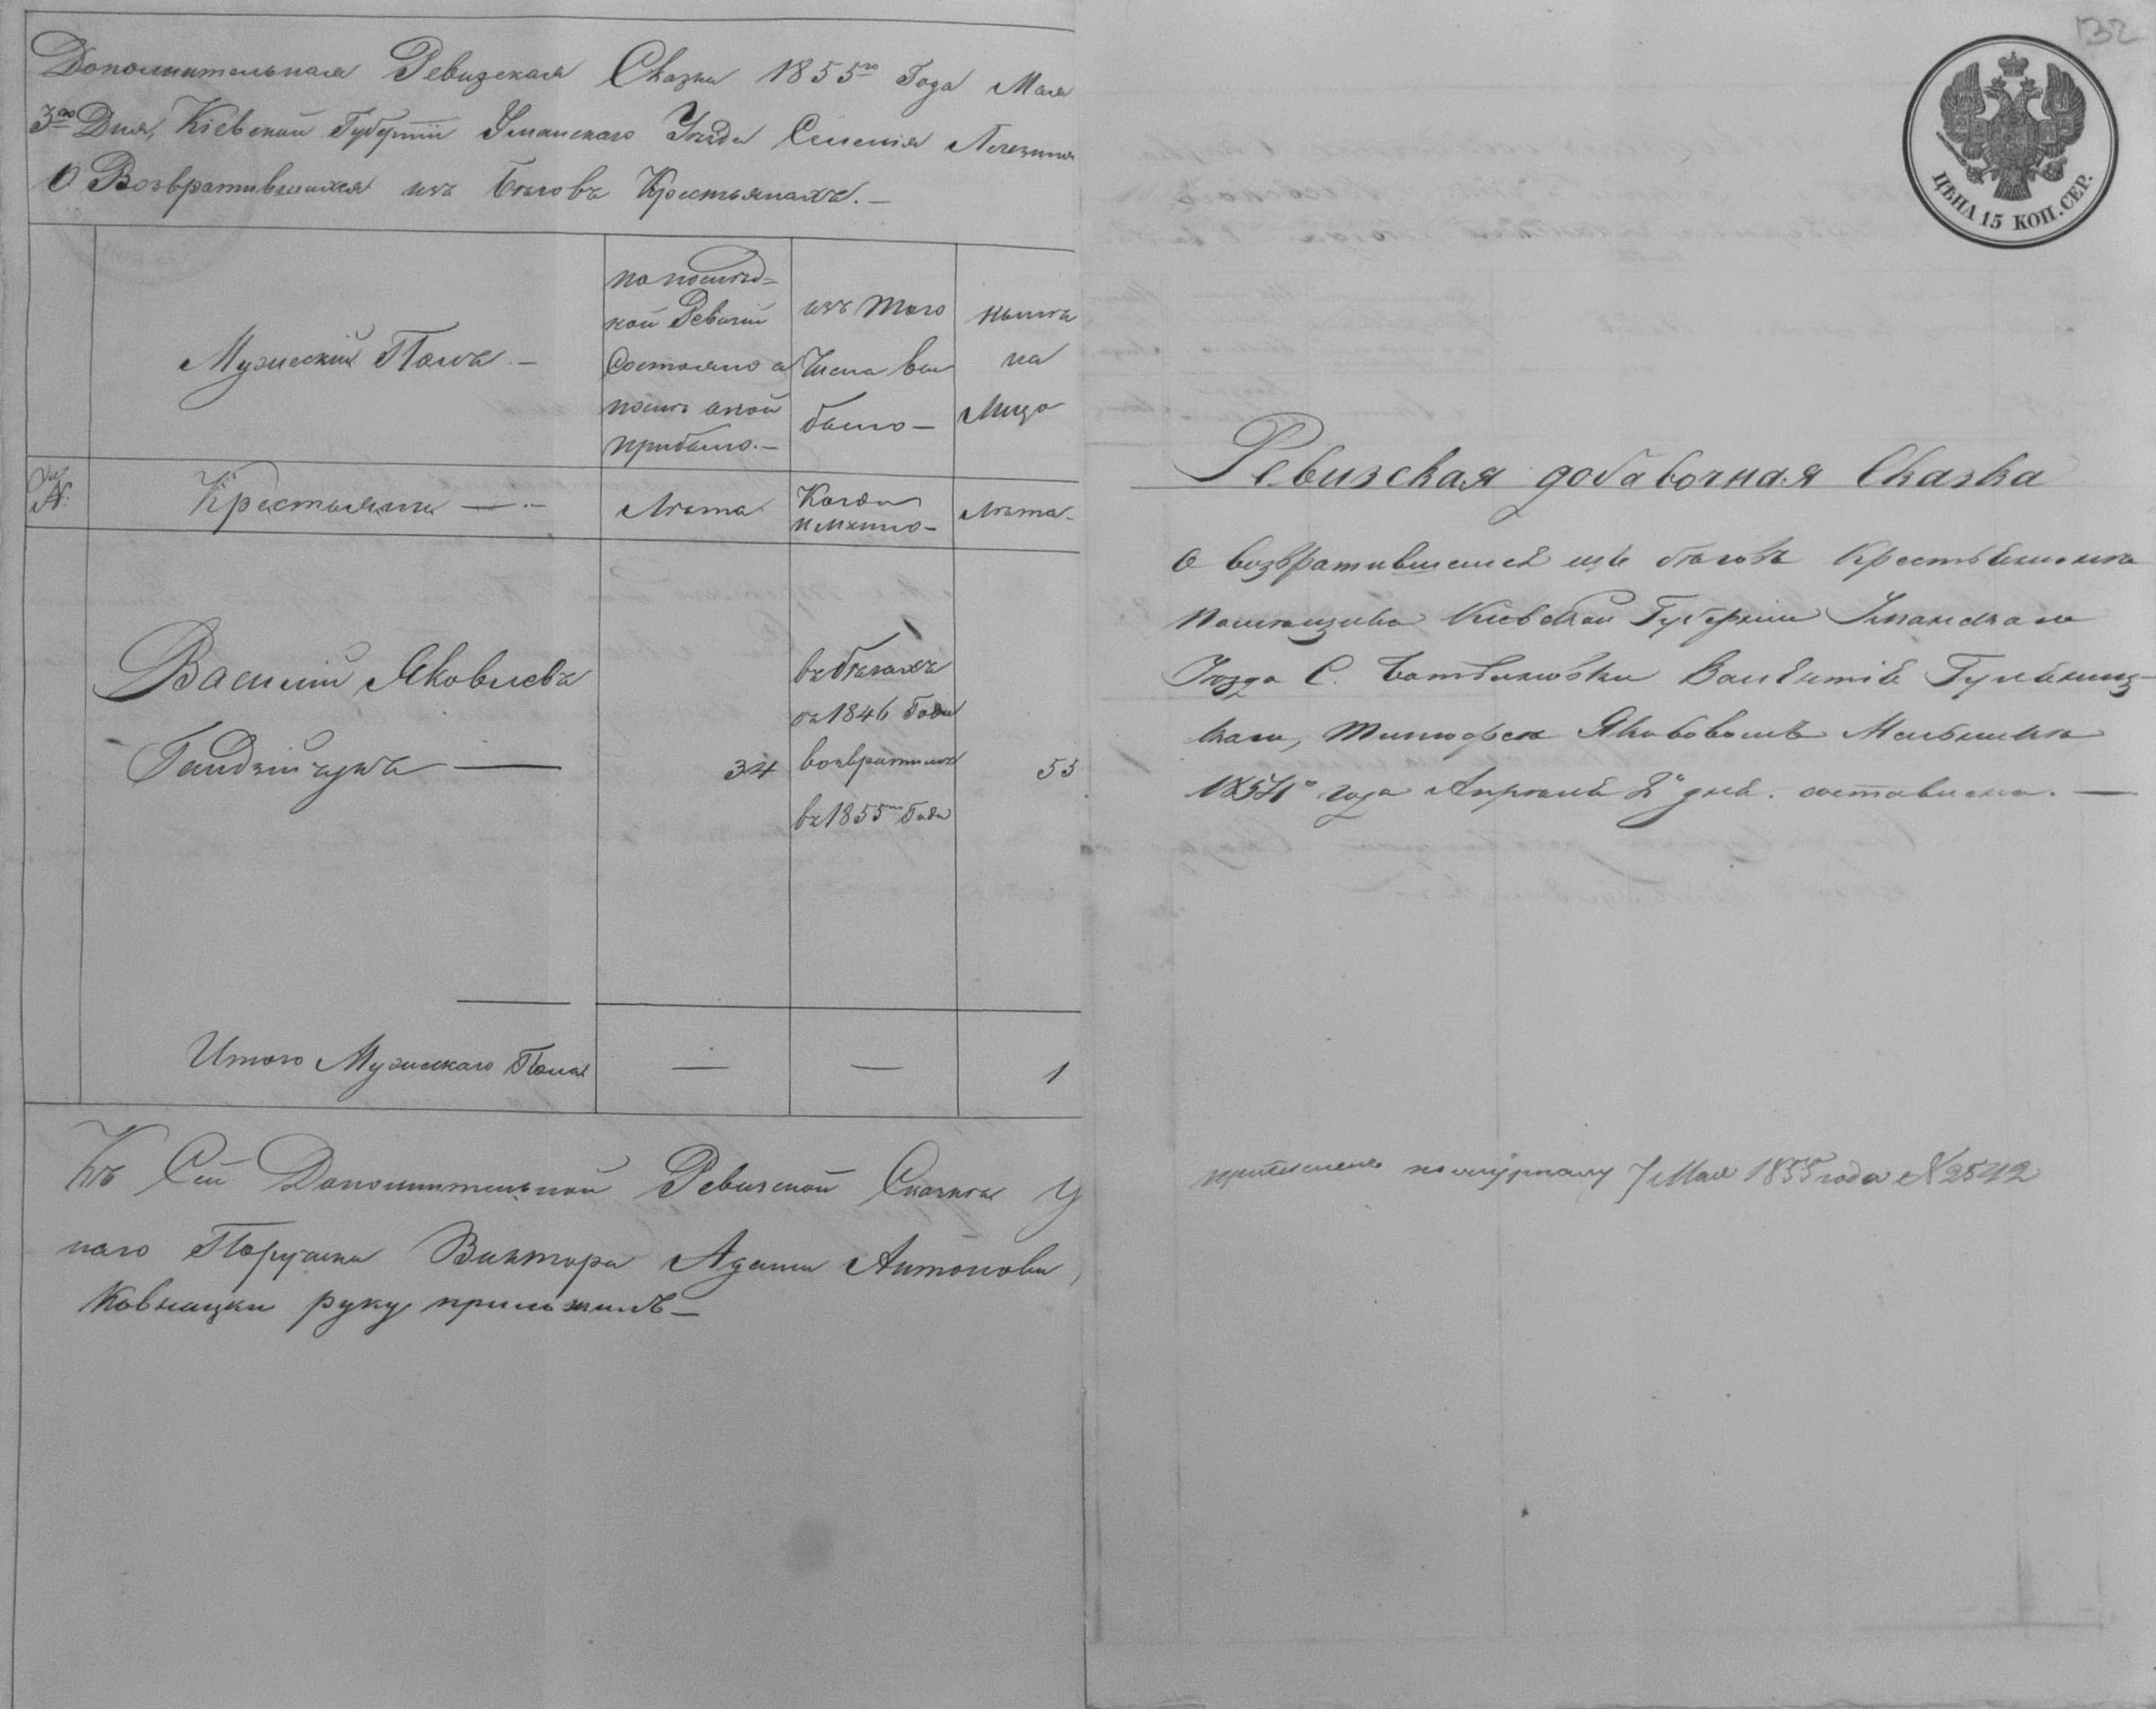 Дополнительная Ревизская Сказка 1855го Года Мая
3го Дня, Кіевской Губерніи Уманскаго Уезда Селенія
О Возвратившихся изъ Беговъ Крестьянахъ. —
Мужескій Полъ. —
по послед=
ней Ревизіи
Состояло и
после оной
прибыло. —
изъ того
Числа вы
было —
ныне
на
Лицо
№
Крестьяне — . —
Лета
Когда
именно —
Лета
Василій Яковлевъ
—
34
въ бегахъ
съ 1846 Года
возвратился
въ 1855м Году
55
Итого Мужескаго Пола
—
—
1
Къ Сей Дополнительной Ревизской Сказке У
наго Поручика Виктора Адама Антонова
руку приложилъ —
132
ЦѢНА 15 КОП. СЕР.
Ревизская добавочная Сказка
о возвратившемся изъ беговъ Крестьянине
помещика Кіевской Губерніи Уманскаго
Уезда С. Валентія
Тимофея Мельника
года Апреля 2о дня. составлена. —
по журналу 7 Мая 1855 года № 2542